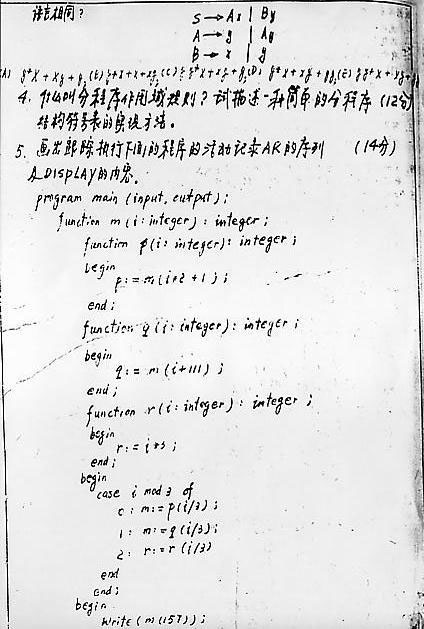 语言相同?
S → Ax | By
A → y | Ay
B → x | y
4. 什么叫分程序作用域规则? 试描述一种简单的分程序 (12分)
结构符号表的实现方法。
5. 画出跟踪执行下面的程序的活动记录AR的序列 (14分)
及DISPLAY的内容。
program main (input, output);
function m (i: integer): integer;
function p(i: integer): integer;
begin
p:= m(i+2+1);
end;
function q(i: integer): integer;
begin
q:= m(i+111);
end;
function r(i: integer): integer;
begin
r:= i*3;
end;
begin
case i mod 3 of
0: m:= p(i/3);
1: m:= q(i/3);
2: r:= r(i/3)
end
end;
begin
write(m(157));